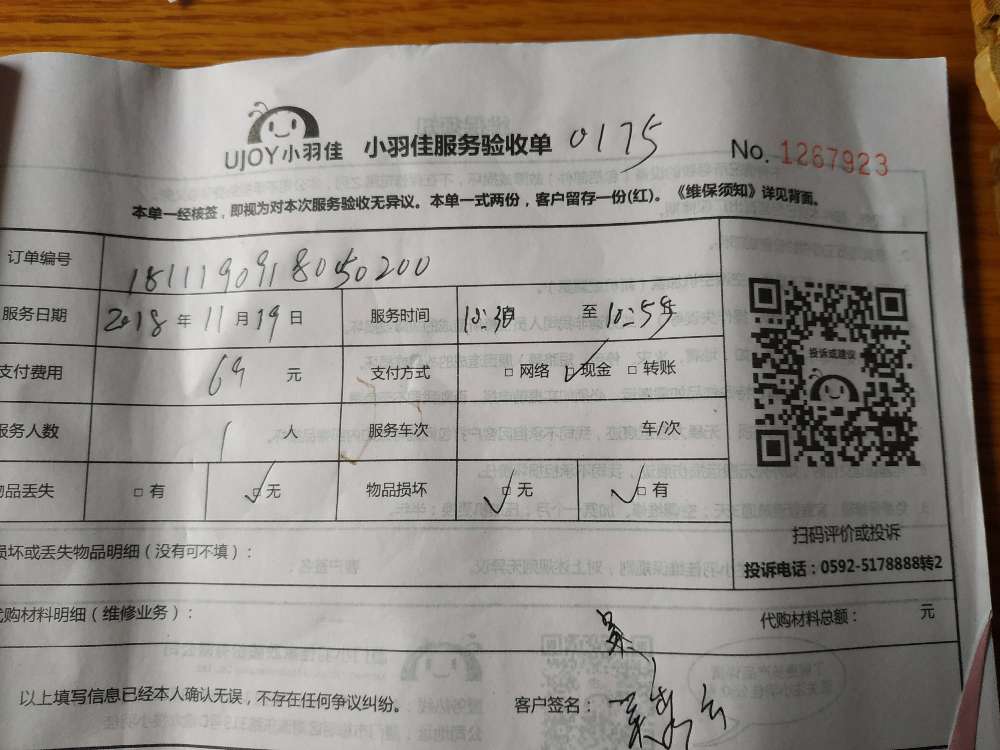 UJOY小羽佳 小羽佳服务验收单 0175 No. 1267923
本单一经核签，即视为对本次服务验收无异议。本单一式两份，客户留存一份(红)。《维保须知》详见背面。
订单编号 1811190918050200
服务日期 2018 年 11 月 19 日 服务时间 10:30 至 10:55
支付费用 69 元 支付方式 □ 网络 □ 现金 □ 转账
服务人数 1 人 服务车次 车/次
物品丢失 □ 有 □ 无 物品损坏 □ 无 □ 有
投诉或建议
扫码评价或投诉
投诉电话：0592-5178888转2
损坏或丢失物品明细（没有可不填）：
代购材料明细（维修业务）： 代购材料总额： 元
以上填写信息已经本人确认无误，不存在任何争议纠纷。 客户签名：